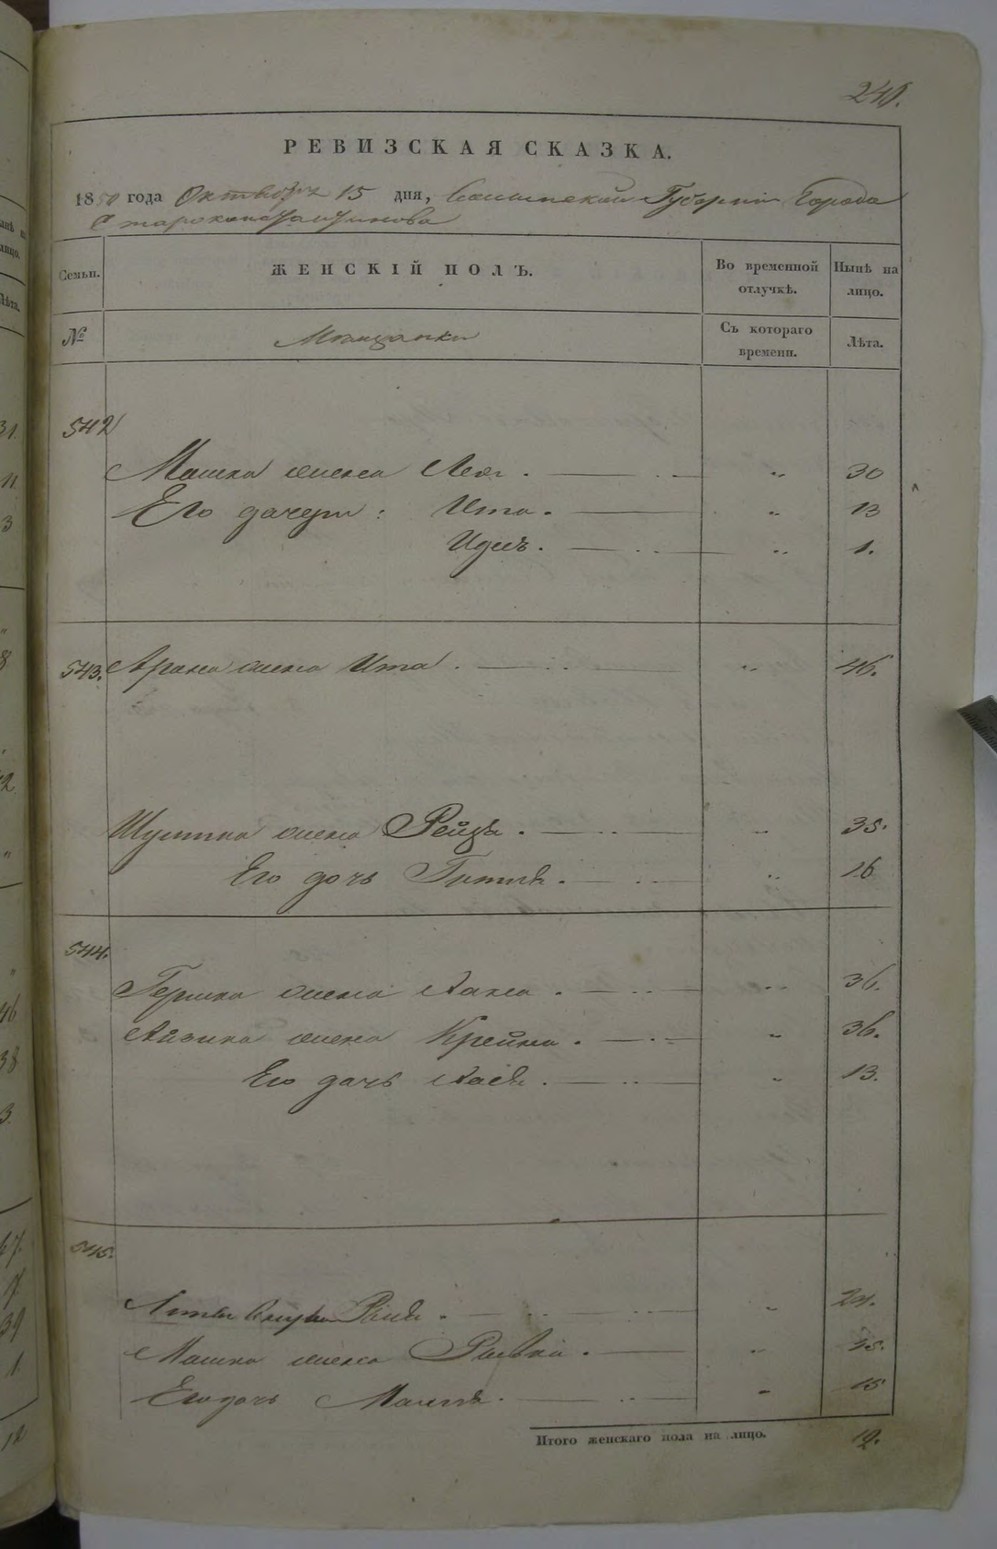 240.
РЕВИЗСКАЯ СКАЗКА.
1850 года Октября 15 дня, Волынской Губернии Города
Староконстантинова
Семьи. ЖЕНСКІЙ ПОЛЪ. Во временной отлучкѣ. Нынѣ на лицо.
№ Мѣщанки Съ котораго времени. Лѣта.
542
Мошка жена Лея. „ 30
Его дочери: Ита. „ 13
Идесъ. „ 1.
543. Арона жена Ита. „ 46.
Шулима жена Рейзя. „ 35.
Его дочь Гитля. „ 16
544.
Гершка жена Хана. „ 36.
Айзика жена Крейна. „ 36.
Его дочь Хася. „ 13.
545.
Рися. „ 21.
Мошка жена Ривка. „ 35.
Его дочь Малля. „ 15
Итого женскаго пола на лицо. 12.